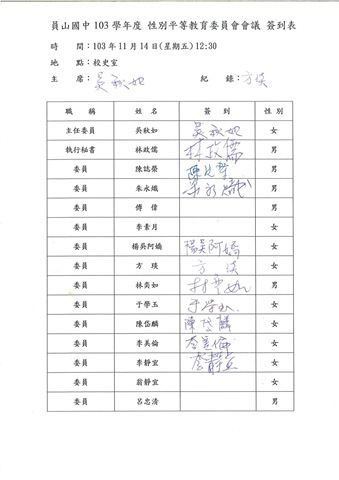 員山國中 103 學年度 性別平等教育委員會會議 簽到表
時 間：103 年 11 月 14 日(星期五) 12:30
地 點：校史室
主 席：吳秋如 紀 錄：方瑛
職 稱 姓 名 簽 到 性 別
主任委員 吳秋如 吳秋如 女
執行秘書 林政儒 林政儒 男
委員 陳誌榮 陳誌榮 男
委員 朱永熾 朱永熾 男
委員 傅 偉 男
委員 李素月 女
委員 楊吳阿嬌 楊吳阿嬌 女
委員 方 瑛 方 瑛 女
委員 林奕如 林奕如 男
委員 于學玉 于学玉 女
委員 陳岱麟 陳岱麟 女
委員 李美倫 李美倫 女
委員 李靜宜 李靜宜 女
委員 翁靜宜 女
委員 呂忠清 男